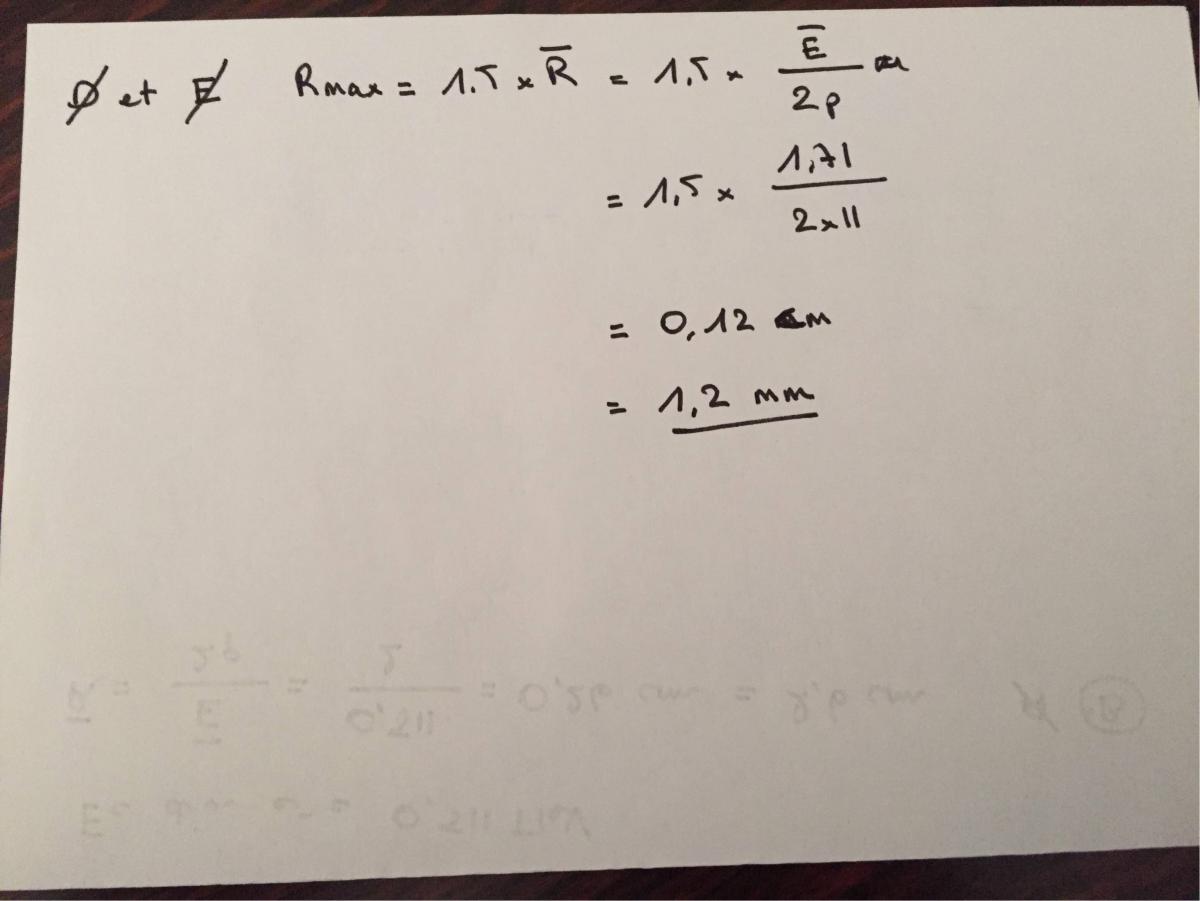 D et E Rmax = 1.5 × R̅ = 1,5 × E̅ / 2ρ
= 1,5 × 1,71 / 2×11
= 0,12 cm
= 1,2 mm